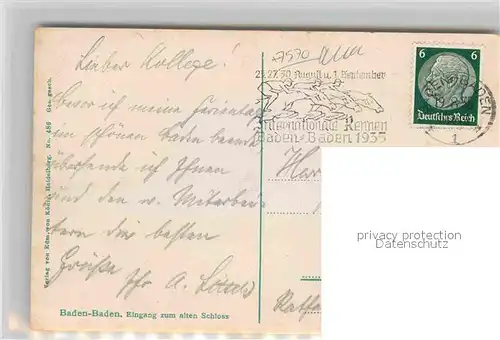 47570
Lieber Kollege!
Bevor ich meine Ferientage
im schönen Baden beende
übersende ich Ihnen
und den w. Mitarbei-
tern die besten
Grüße Ihr A.
25. 27. 30. August u. 1. September
Internationale Rennen
Baden-Baden 1935
6 6
Deutsches Reich
BADEN
Her
privacy protection
Datenschutz
Verlag von Edm. von König, Heidelberg. No. 486 Ges. gesch.
Baden-Baden, Eingang zum alten Schloss